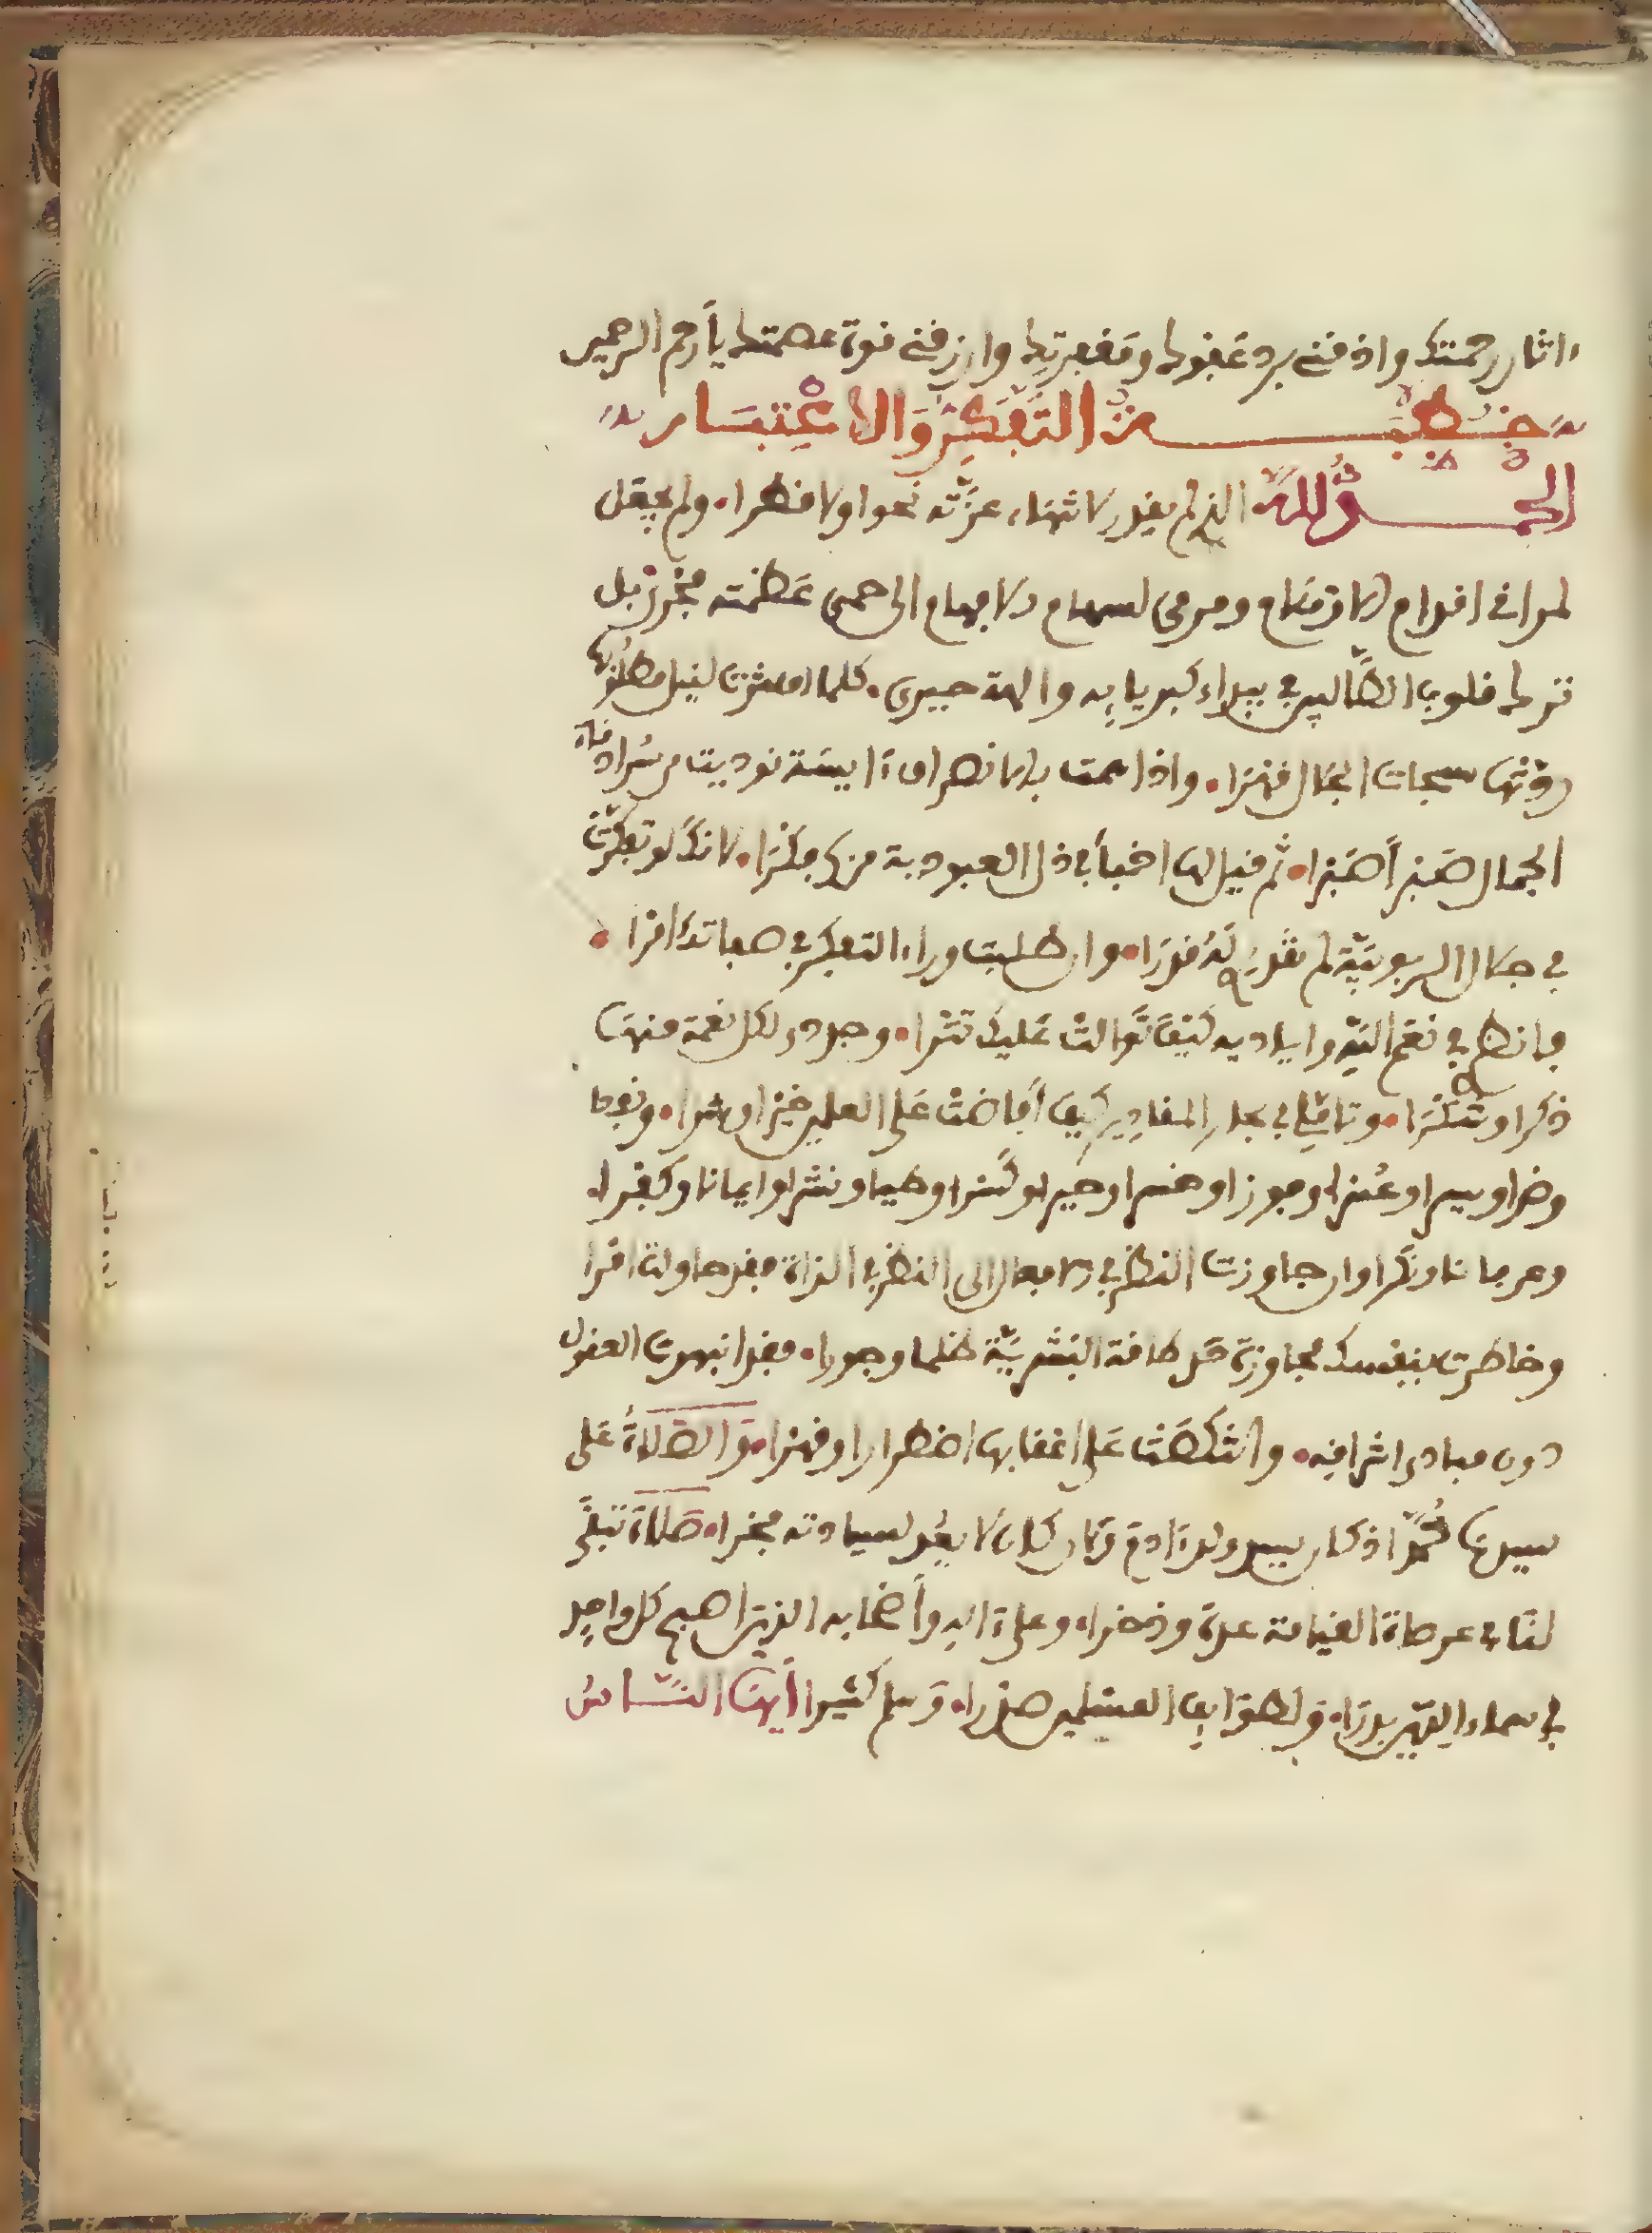 ءاثار رحمتك واذقني برد عفوك ومغفرتك وارزقني قوة عصمتك يا أرحم الرحمين
خطبة في التفكر والاعتبار
الحمد لله الذي لم يقدر لانتهاء عزته نحوا ولا قطرا ولم يجعل
لمراقي اقدام الاوهام ومرمى لسهام الافهام الى حمى عظمته مجرى بل
ترك قلوب الطالبين في بيداء كبريايه والهة حيرى كلما اهتزت لنيل مطلوبها
ردتها سبحات الجلال قهرا واذا همت بالانصراف ءايسة نوديت من سرادقات
الجمال صبرا صبرا ثم قيل لها اجيلي في ذل العبودية منك فكرا لانك لو تفكرت
في جلال الربوبية لم تقدري له قدرا وان طلبت وراء التفكر في صفاتك امرا
فانظري في نعم الله واياديه كيف توالت عليك تترا وجددي لكل نعمة منها
ذكرا وشكرا وتاملي في بحار المقادير كيف أفاضت على العلمين خيرا وشرا ونفعا
وضرا ويسرا وعسرا وفوزا وخسرا وجبرا وكسرا وطيا ونشرا وايمانا وكفرا
وعرفانا ونكرا وان جاوزت النظر في الافعال الى النظر في الذات فقد حاولت امرا
وخاطرت بنفسك مجاوزة حد طاقة البشرية ظلما وجورا فقد انبهرت العقول
دون مبادي اشراقه وانتكصت على اعقابها اضطرارا وقهرا والصلاة على
سيدنا محمد اذ كان سيد ولد ءادم وان كان لا يعد لسيادته فخرا صلاة تبقى
لنا في عرصات القيامة عدة وذخرا وعلى ءاله وأصحابه الذين اصبح كل واحد
في سماء الدين بدرا ولطوايف المسلمين صدرا وسلم كثيرا أيها الناس